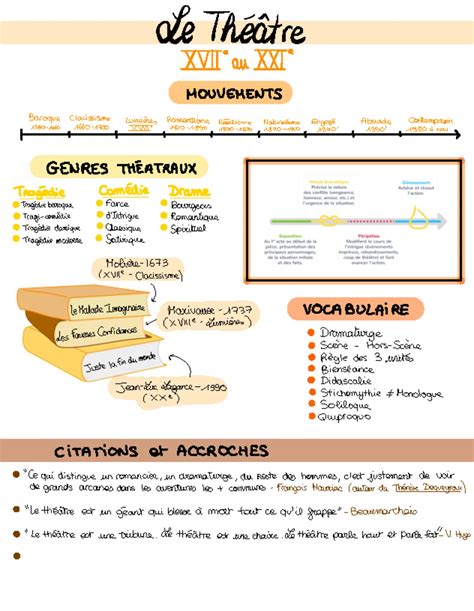 Le Théâtre
XVIIe au XXIe
MOUVEMENTS
Baroque Classicisme Lumières Romantisme Réalisme Naturalisme Engagé Absurde Contemporain
GENRES THÉATRAUX
Tragédie Comédie Drame
Tragédie baroque Farce Bourgeois
Tragi-comédie d'Intrigue Romantique
Tragédie classique Classique Spirituel
Tragédie moderne Satirique
Précise la nature
des conflits (vengeance,
honneur, amour, etc.) et
l'urgence de la situation.
Dénouement
Achève et résout
l'action.
Exposition
Au 1er acte ou au début de la
pièce, présentation des
principaux personnages,
de la situation initiale
et des faits.
Péripéties
Modifient le cours de
l'intrigue (événements
imprévus, retournements,
coup de théâtre) et
font avancer l'action.
Molière - 1673
(XVIIe - Classissisme)
Le Malade Imaginaire
Marivaux - 1737
(XVIIIe - Lumières)
Les Fausses Confidences
Juste la fin du monde
Jean-Luc Lagarce - 1990
(XXe)
VOCABULAIRE
Dramaturge
Scène - Hors-Scène
Règle des 3 unités
Bienséance
Didascalie
Stichomythie ≠ Monologue
Soliloque
Quiproquo
CITATIONS et ACCROCHES
"Ce qui distingue un romancier, un dramaturge, du reste des hommes, c'est justement de voir
de grands arcanes dans les aventures les + communes - François Mauriac (auteur de Thérèse Desqueyroux)
"Le théâtre est un géant qui blesse à mort tout ce qu'il frappe" - Beaumarchais
"Le théâtre est une tribune. Le théâtre est une chaire. Le théâtre parle haut et parle fort" - V. Hugo